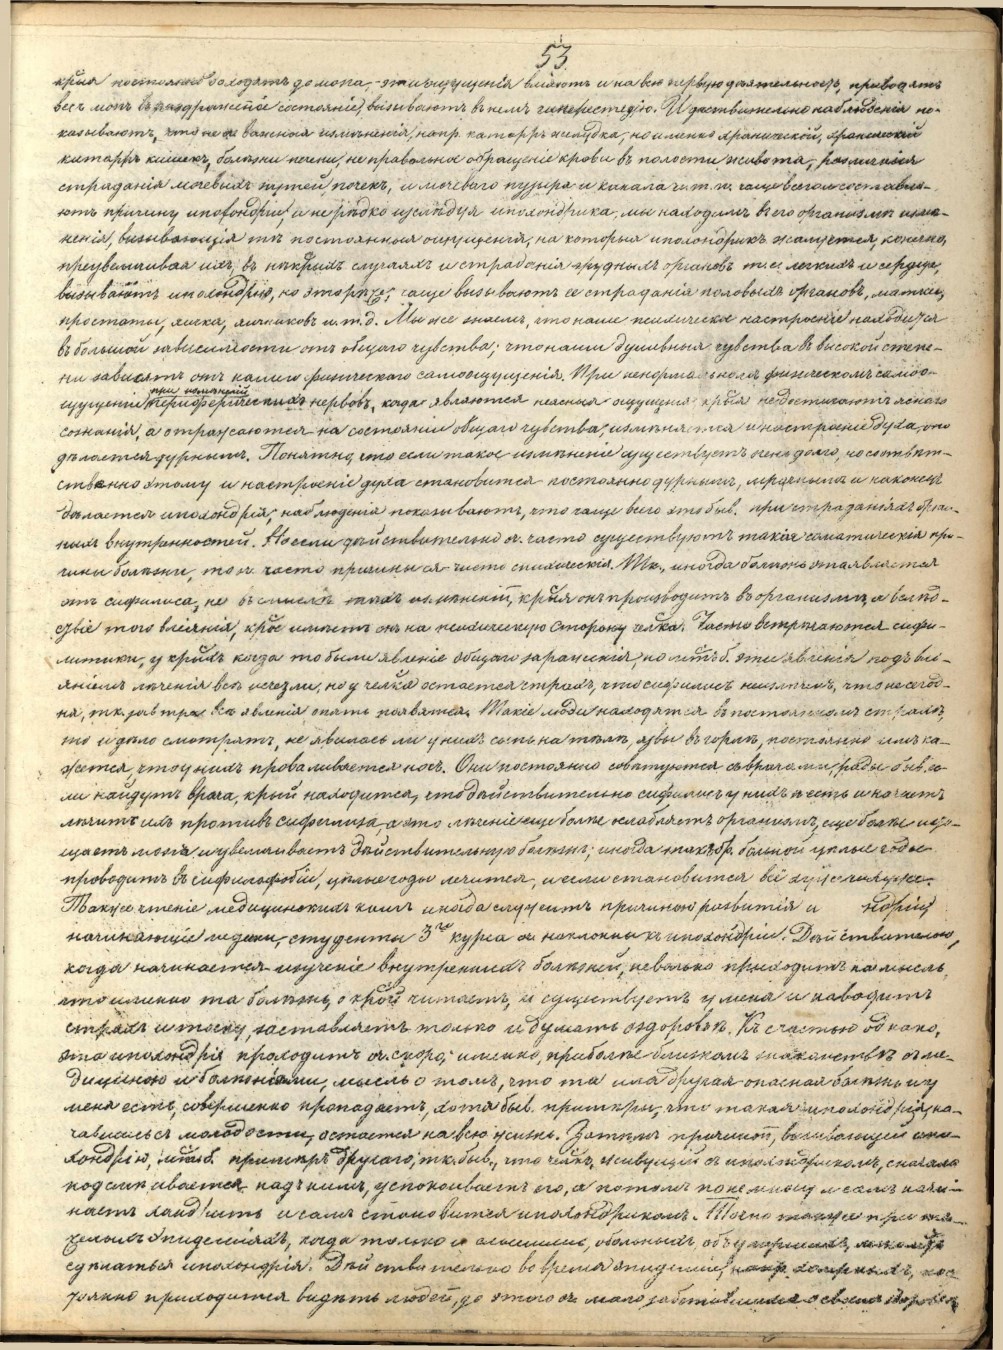 53
крыя постоянно доходятъ до мозга, – эти ощущенія вліяютъ и на всю нервную дѣятельность, приводятъ
весь мозгъ въ раздраженное состояніе, вызываютъ въ немъ гиперестезію. И дѣйствительно наблюденія по-
казываютъ, что не важныя измѣненія, напр. катарръ желудка, но именно хроническій, хроническій
катарръ кишекъ, болѣзни печени, неправильное обращеніе крови въ полости живота, различныя
страданія мочевыхъ путей, почекъ, и мочеваго пузыря и канала и т. п. чаще всего составля-
ютъ причину ипохондріи, и не рѣдко изслѣдуя ипохондрика, мы находимъ въ его организмѣ измѣ-
ненія, вызывающія тѣ постоянныя ощущенія, на которыя ипохондрикъ жалуется, конечно,
преувеличивая ихъ; въ нѣкрыхъ случаяхъ и страданія грудныхъ органовъ т. е. легкихъ и сердца,
вызываютъ ипохондрію, но это рѣже; чаще вызываютъ ее страданія половыхъ органовъ, матки,
простаты, яичка, яичниковъ и т. д. Мы же знаемъ, что наше психическое настроеніе находится
въ большой зависимости отъ общаго чувства; что наши душевныя чувства въ высокой степе-
ни зависятъ отъ нашего физическаго самоощущенія. При ненормальномъ физическомъ самоо-
щущеніи при
периферическихъ нервовъ, когда являются неясныя ощущенія крыя не достигаютъ яснаго
сознанія, а отражаются на состояніи общаго чувства, измѣняется и настроеніе духа, оно
дѣлается дурнымъ. Понятно, что если такое измѣненіе существуетъ очень долго, то соотвѣт-
ственно этому и настроеніе духа становится постоянно дурнымъ, мрачнымъ и наконецъ
дѣлается ипохондрія; наблюденія показываютъ, что чаще всего это быв. при страданіяхъ брюш-
ныхъ внутренностей. Но если дѣйствительно оч. часто существуютъ такія соматическія при-
чины болѣзни, то оч. часто причины ея чисто психическія. Тк., иногда болѣзнь эта является
отъ сифилиса, не въ смыслѣ тѣхъ измѣненій, крыя онъ производитъ въ организмѣ, а вслѣд-
ствіе того вліянія, крое имѣетъ онъ на психическую сторону челка. Часто встрѣчаются сифи-
литики, у крыхъ когда то были явленіе общаго зараженія, но эти явленія подъ влі-
яніемъ лѣченія всѣ исчезли, но у челка остается страхъ, что сифилисъ неизлѣчимъ, что не сегод-
ня, тк. завтра всѣ явленія опять появятся. Такіе люди находятся въ постоянномъ страхѣ,
то и дѣло смотрятъ, не явилась ли у нихъ сыпь на тѣлѣ, язвы въ горлѣ, постоянно имъ ка-
жется, что у нихъ проваливается носъ. Они постоянно совѣтуются съ врачами, рады быв. ес-
ли найдутъ врача, крый находится, что дѣйствительно сифилисъ у нихъ есть и начнетъ
лѣчить ихъ противъ сифилиса, а это лѣченіе еще болѣе ослабляетъ организмъ, еще болѣе исто-
щаетъ мозгъ и увеличиваетъ дѣйствительную болѣзнь; иногда такъ обр. больной цѣлые годы
проводитъ въ сифилофобіи, цѣлые годы лечится, и если становится все хуже и хуже.
Также чтеніе медицинскихъ книгъ иногда служитъ причиною развитія и ндріи
начинающіе медики, студенты 3го курса оч. наклонны къ ипохондріи. Дѣйствительно,
когда начинается изученіе внутреннихъ болѣзней, невольно приходитъ на мысль,
что именно та болѣзнь, о крой читаетъ, и существуетъ у меня и наводитъ
страхъ и тоску, заставляетъ только и думать о здоровьѣ. Къ счастью однако,
эта ипохондрія проходитъ оч. скоро; именно, при болѣе близкомъ знакомствѣ съ ме-
дициною и болѣзнями, мысль о томъ, что та или другая опасная болѣзнь и у
меня есть, совершенно пропадаетъ, хотя быв. примѣры, что такая ипохондрія, на-
чавшись съ молодости, остается на всю жизнь. Затѣмъ причиной, вызывающей ипо-
хондрію, примѣръ другаго, тк. быв., что челкъ, живущій съ ипохондрикомъ, сначала
подсмѣивается надъ нимъ, успокоиваетъ его, а потомъ понемногу и самъ начи-
наетъ хандрить и самъ становится ипохондрикомъ. Точно также при тя-
желыхъ эпидеміяхъ, когда только и о больныхъ, объ умершихъ,
сдѣлаться ипохондрія. Дѣйствительно во время эпидеміи, напр. холерныхъ, пос-
тоянно приходится видѣть людей, до этого оч. мало заботившихся о своемъ здоровьѣ